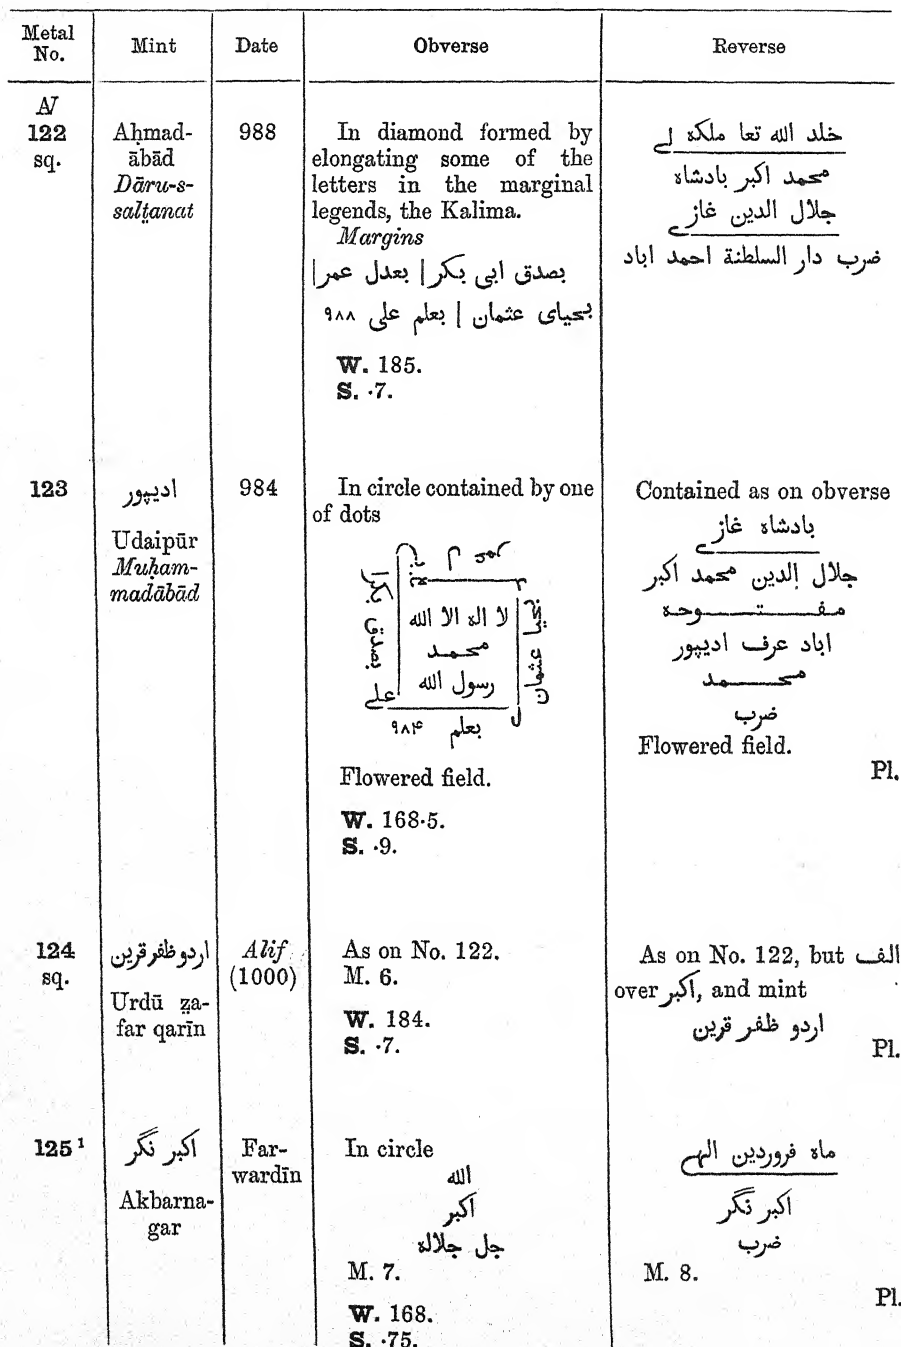 Metal No.
Mint
Date
Obverse
Reverse
AV
122
sq.
Aḥmad-
ābād
Dāru-s-
salṭanat
988
In diamond formed by
elongating some of the
letters in the marginal
legends, the Kalima.
Margins
بصدق ابى بكر | بعدل عمر |
بحياى عثمان | بعلم على ٩٨٨
W. 185.
S. ·7.
خلد الله تعا ملكه لے
محمد اكبر بادشاه
جلال الدين غازے
ضرب دار السلطنة احمد اباد
123
اديپور
Udaipūr
Muḥam-
madābād
984
In circle contained by one
of dots
لا اله الا الله
محمد
رسول الله
بصدق
بكرا
عثمان
على
بعلم ٩٨۴
Flowered field.
W. 168·5.
S. ·9.
Contained as on obverse
بادشاه غازے
جلال الدين محمد اكبر
مفتوحه
اباد عرف اديپور
محمد
ضرب
Flowered field.
Pl.
124
sq.
اردو ظفر قرين
Urdū ẓa-
far qarīn
Alif
(1000)
As on No. 122.
M. 6.
W. 184.
S. ·7.
As on No. 122, but الف
over اكبر, and mint
اردو ظفر قرين
Pl.
125 ¹
اكبر نگر
Akbarna-
gar
Far-
wardīn
In circle
الله
اكبر
جل جلاله
M. 7.
W. 168.
S. ·75.
ماه فروردين الهے
اكبر نگر
ضرب
M. 8.
Pl.